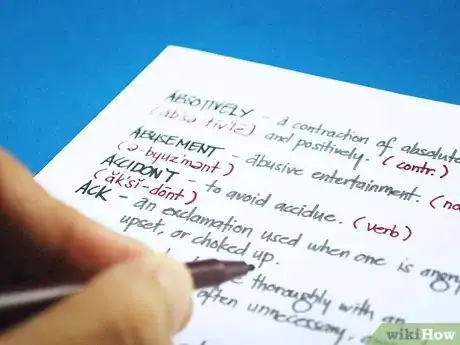 ABSOTIVELY - a contraction of absolute
(absə tiv'lē) and positively. (contr.)
ABUSEMENT - abusive entertainment. (no
(ə-byuz'mənt)
ACCIDON'T - to avoid accidue. (verb)
(ăksĭ-dōnt)
ACK - an exclamation used when one is angry
upset, or choked up.
thoroughly with an
often unnecessary, a
wikiHow